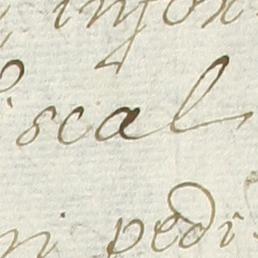 y infor
iscal
ni pedi